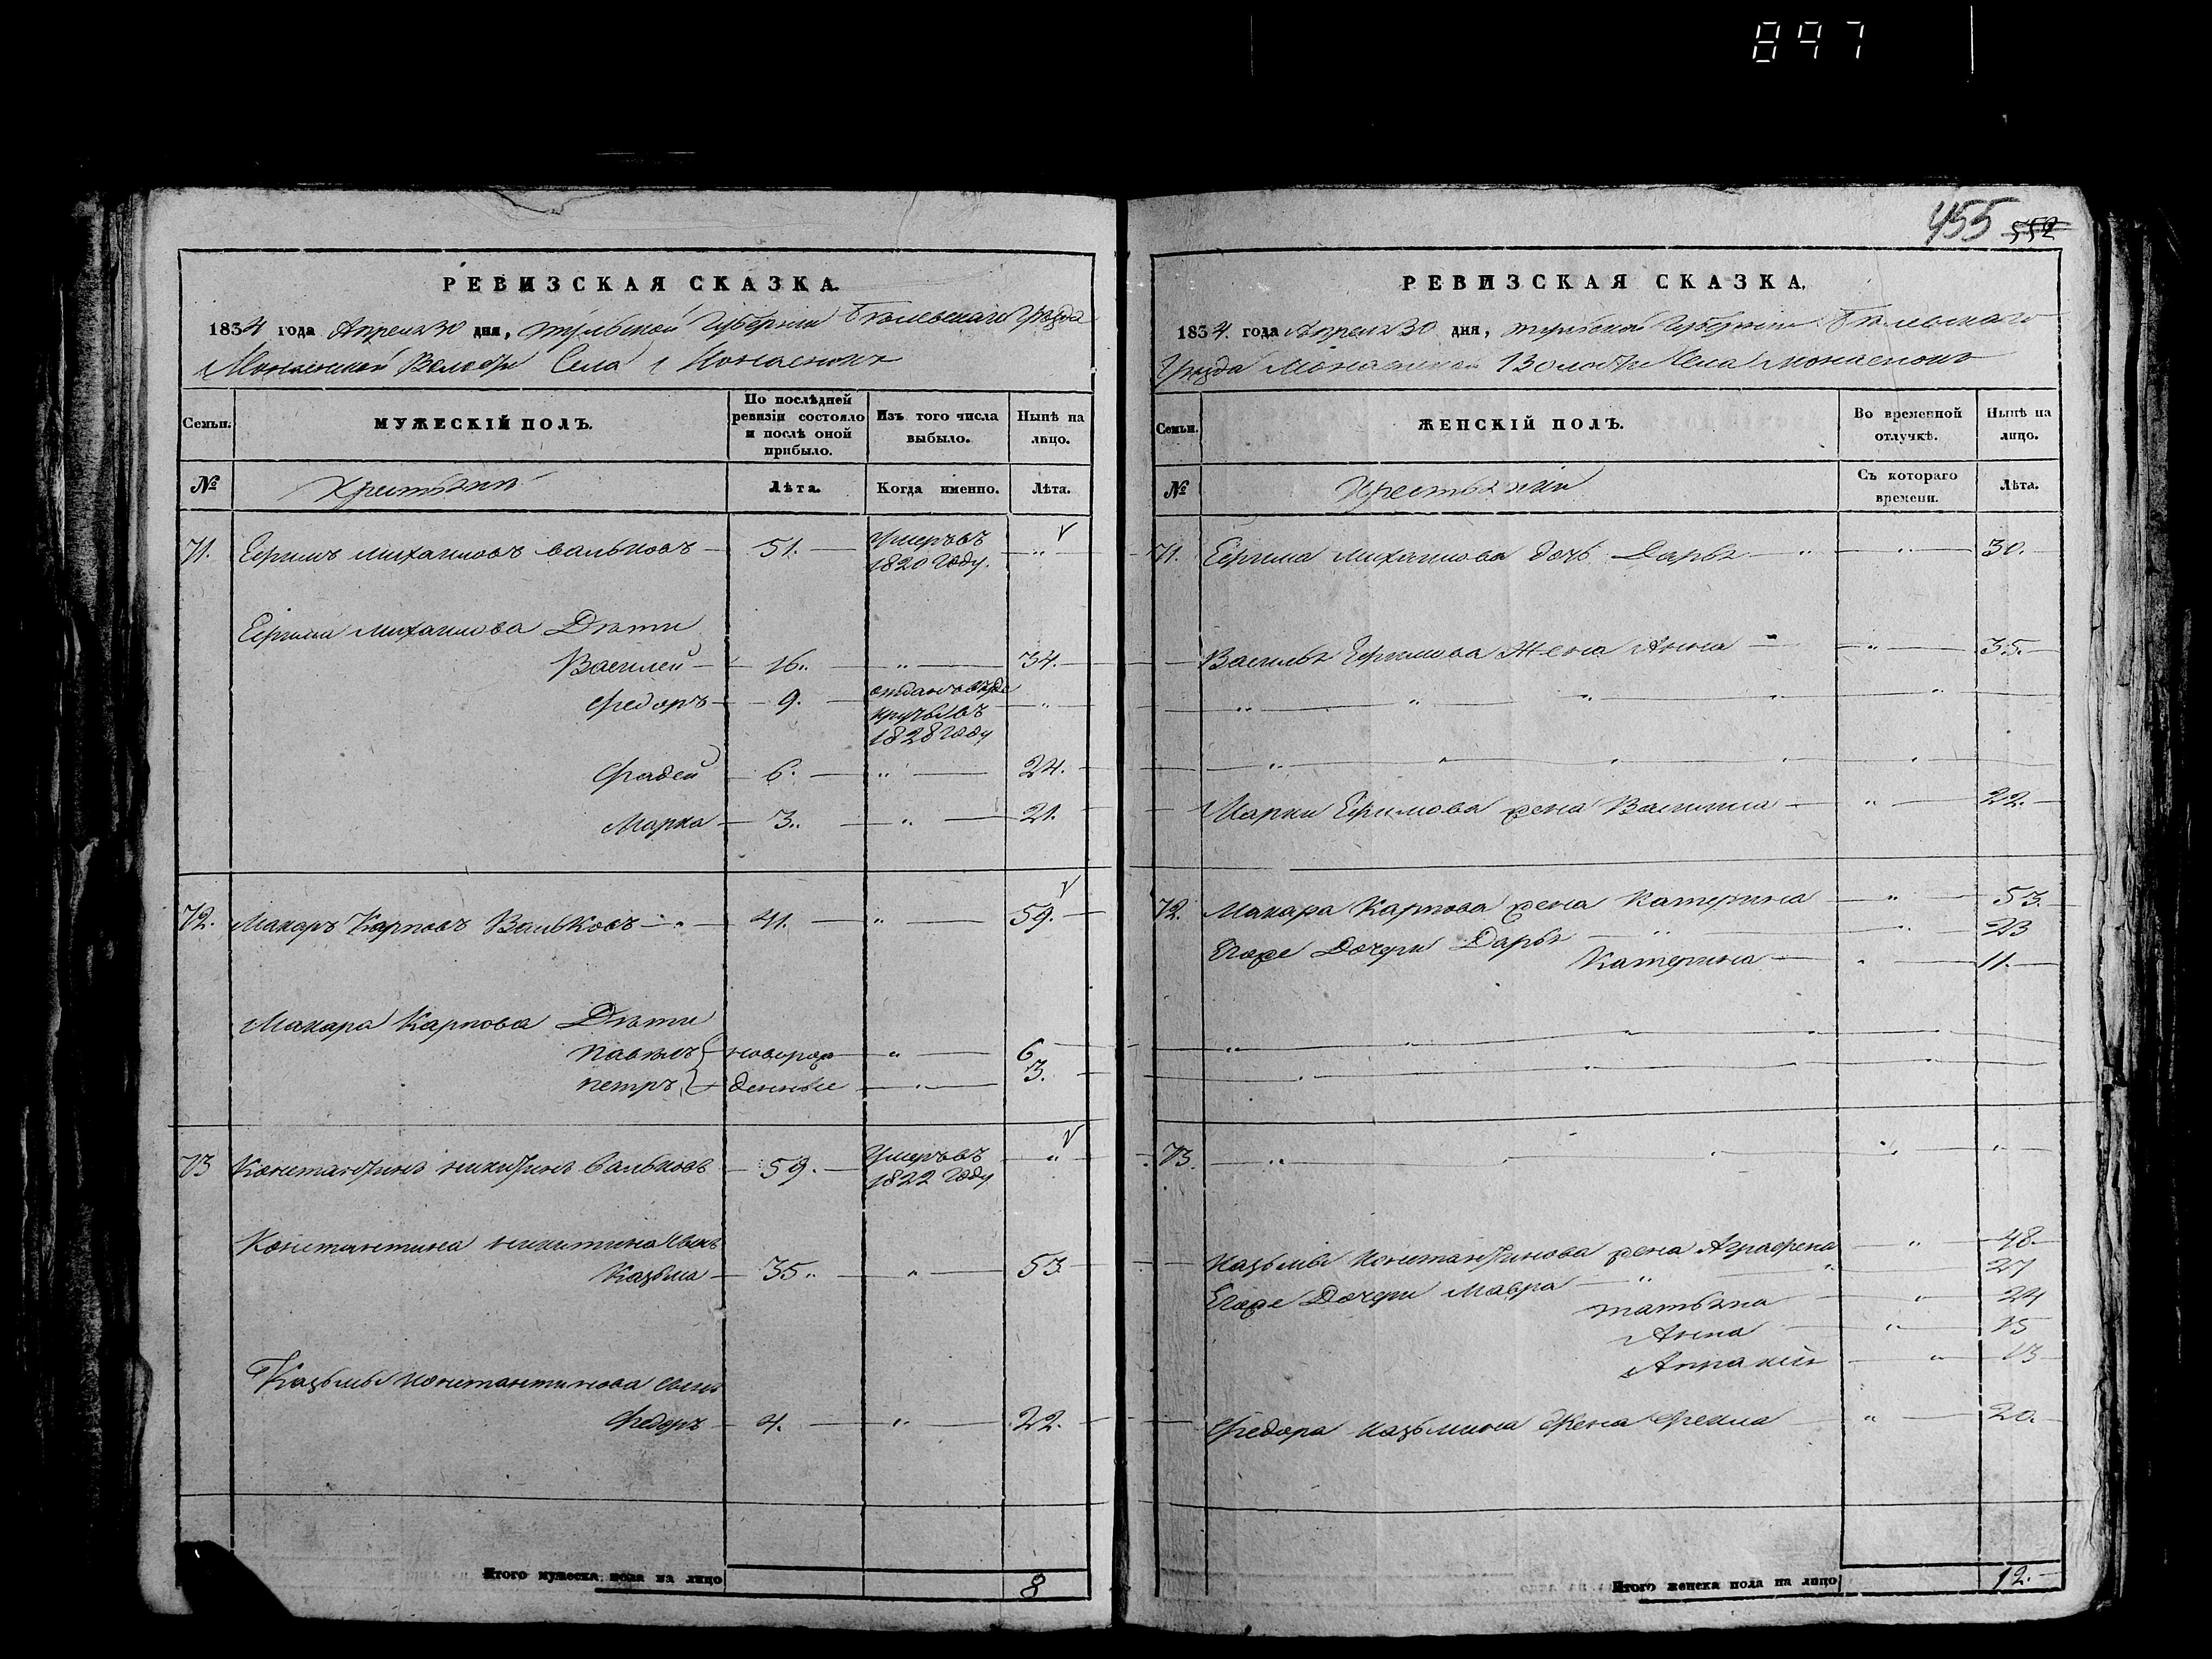 897
455 552
РЕВИЗСКАЯ СКАЗКА.
1834 года Апреля 30 дня, тульской Губернии Белевскаго Уезда
Волости Села
Семьи.
МУЖЕСКІЙ ПОЛЪ.
По послѣдней ревизіи состояло и послѣ оной прибыло.
Изъ того числа выбыло.
Нынѣ на лицо.
№
Лѣта.
Когда именно.
Лѣта.
71. Ефимъ михаиловъ вальковъ 51. Умеръ въ 1820 Году.
Ефима михаилова Дѣти
Василей 16. 34.
Федоръ 9. отданъ въ 1828 Году
Фадей 6. 24.
Марка 3. 21.
72. Макаръ Карповъ Вальковъ 41. 59.
Макара Карпова Дѣти
павелъ новорож 6
петръ денные 3.
73 Константинъ никитинъ вальковъ 59. Умеръ въ 1822 Году
Константина никитина сынъ
Казьма 35 53
Казьмы константинова сынъ
Федоръ 4. 22.
Итого мужеска пола на лицо 8
РЕВИЗСКАЯ СКАЗКА.
1834. года Апреля 30 дня, тульской Губернии Белевскаго
Уезда Волости Села
Семьи.
ЖЕНСКІЙ ПОЛЪ.
Во временной отлучкѣ.
Нынѣ на лицо.
№
Съ котораго времени.
Лѣта.
71. Ефима михаилова дочь Дарья 30.
Василья Ефимова Жена Анна 35.
Марки Ефимова жена Василиса 22.
72. Макара Карпова жена Катерина 53.
Егоже Дочери Дарья 23
Катерина 11.
73.
Казьмы константинова жена Аграфена 48.
Егоже Дочери Мавра 27
татьяна 24
Анна 15
13
Федора казьмина Жена Фекла 20.
Итого женска пола на лицо 12.